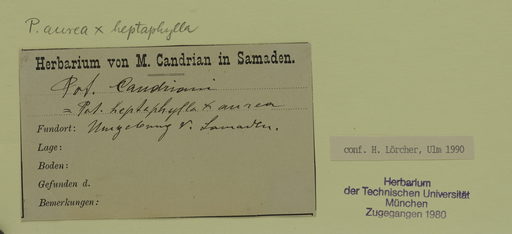 P. aurea x heptaphylla
Herbarium von M. Candrian in Samaden.
Pot. Candriani
= Pot. heptaphylla x aurea
Fundort: Umgebung v. Samaden.
Lage:
Boden:
Gefunden d.
Bemerkungen:
conf. H. Lörcher, Ulm 1990
Herbarium
der Technischen Universität
München
Zugegangen 1980